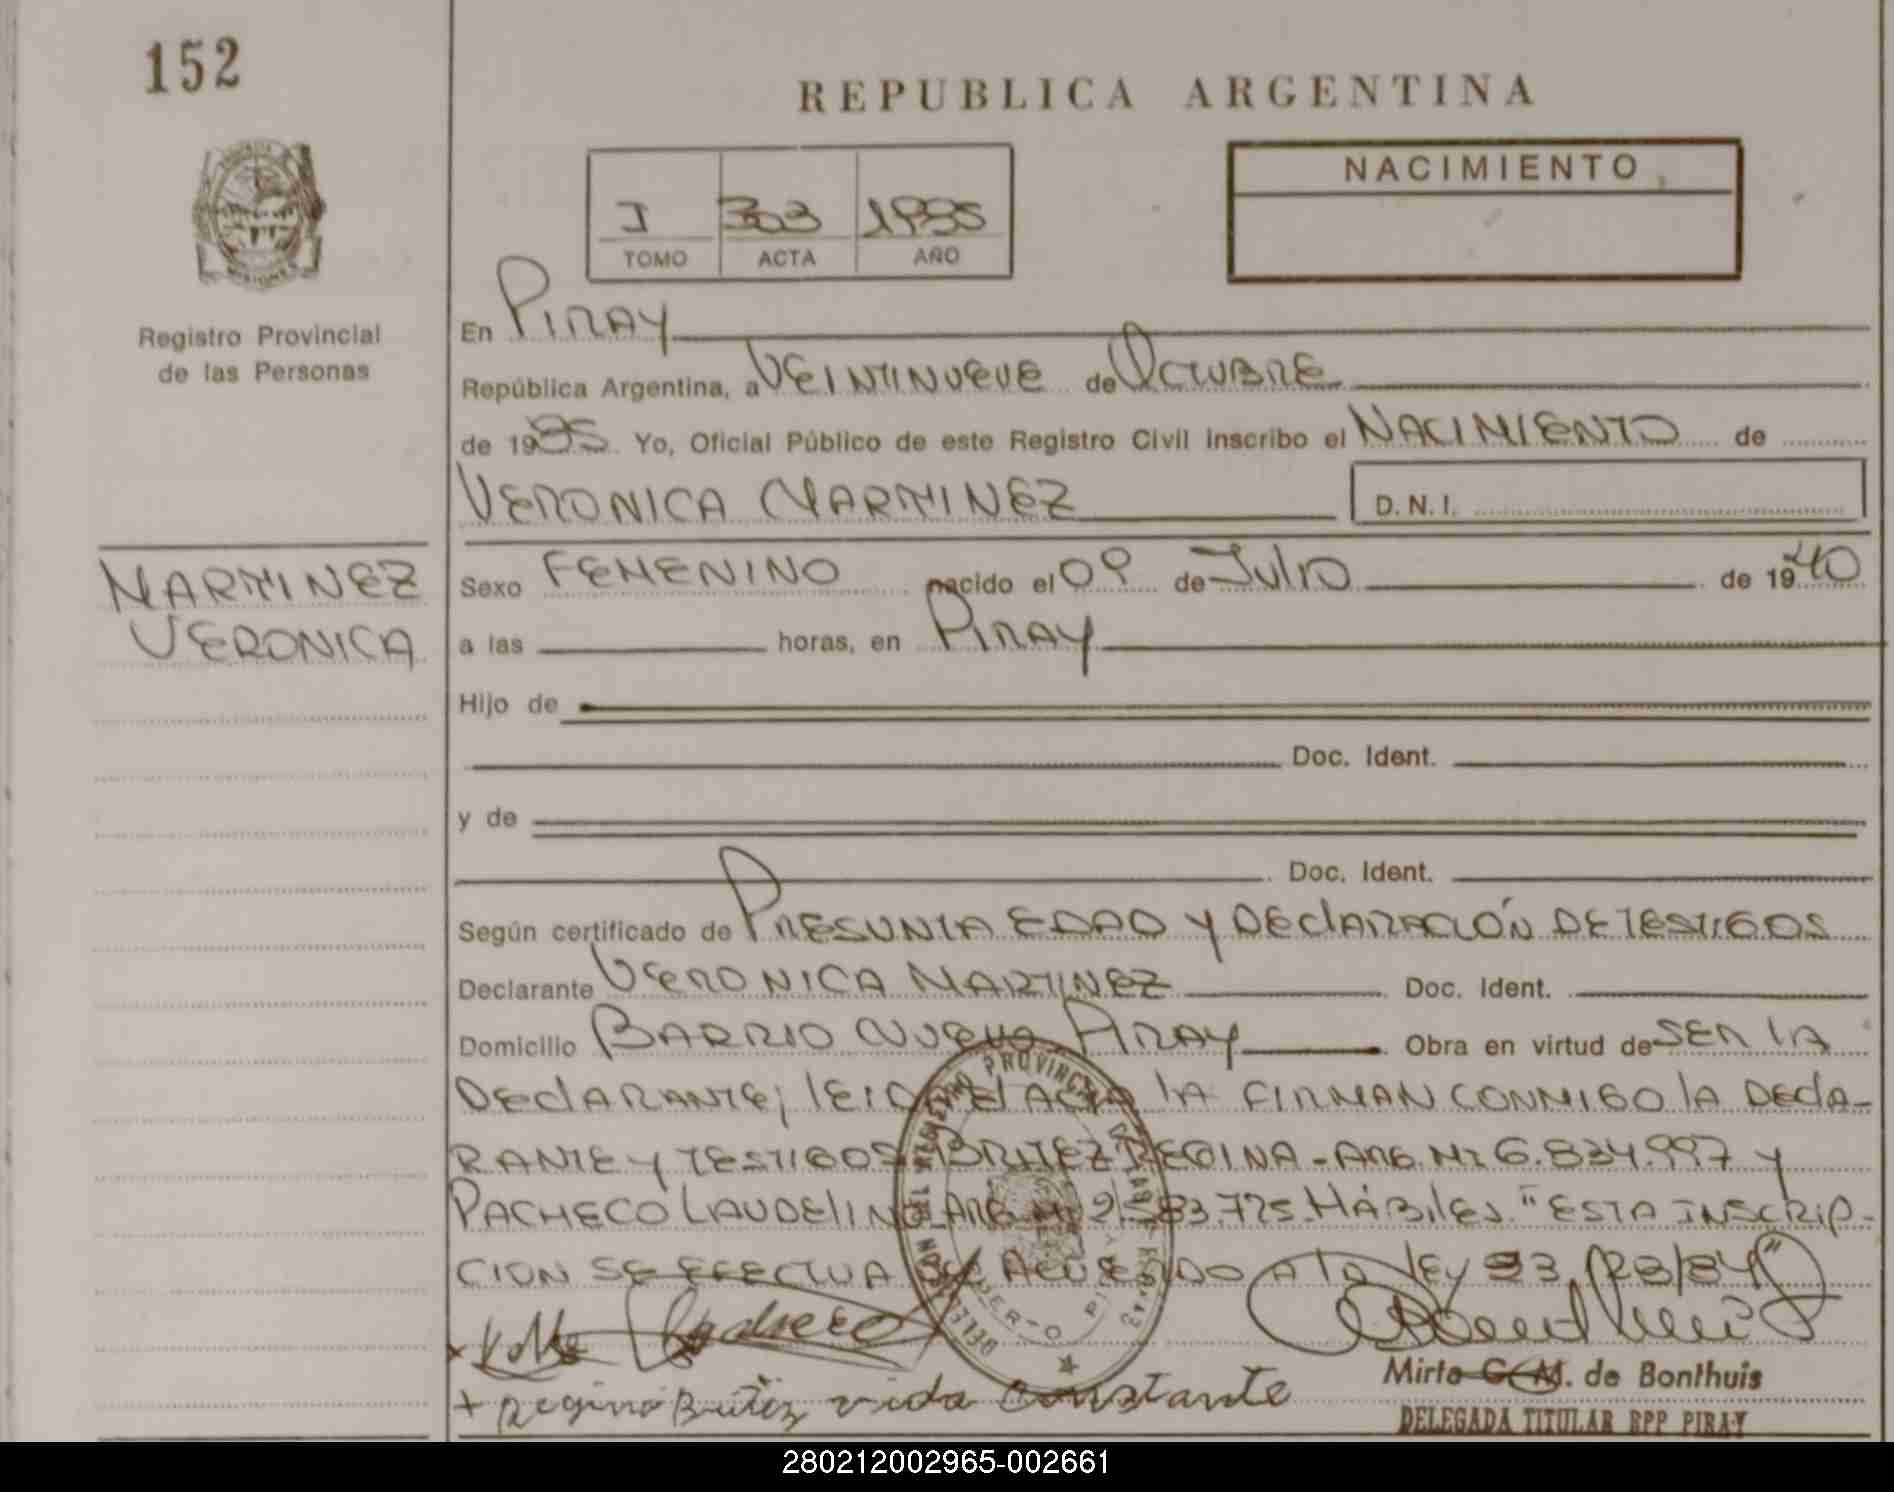 152
REPUBLICA ARGENTINA
NACIMIENTO
I 303 1995
TOMO ACTA AÑO
Registro Provincial
de las Personas
En PIRAY
República Argentina, a VEINTINUEVE de OCTUBRE
de 1995. Yo, Oficial Público de este Registro Civil inscribo el NACIMIENTO de
VERONICA MARTINEZ D.N.I.
MARTINEZ
VERONICA
Sexo FEMENINO nacido el 09 de Julio de 1940
a las horas, en PIRAY
Hijo de
Doc. Ident.
y de
Doc. Ident.
Según certificado de PRESUNTA EDAD Y DEClARACIÓN DE TESTIGOS
Declarante VERONICA MARTINEZ Doc. Ident.
Domicilio BARRIO NUEVO PIRAY Obra en virtud de SER lA
DEClARANTE; lEIDA El ACTA lA FIRMAN CONMIGO lA DEClA-
RANTE Y TESTIGOS BRITEZ REGINA - ARG. MI 6.834.997 Y
PACHECO LAUDElINO ARG MI 2.583.775. HÁBiles. "ESTA INSCRIP-
CION SE EFECTUA DE ACUERDO A la lEy 23/84"
Pacheco
+ Regina Britez vida Constante
Mirta G. M. de Bonthuis
DELEGADA TITULAR RPP PIRAY
PUERTO PIRAY
280212002965-002661